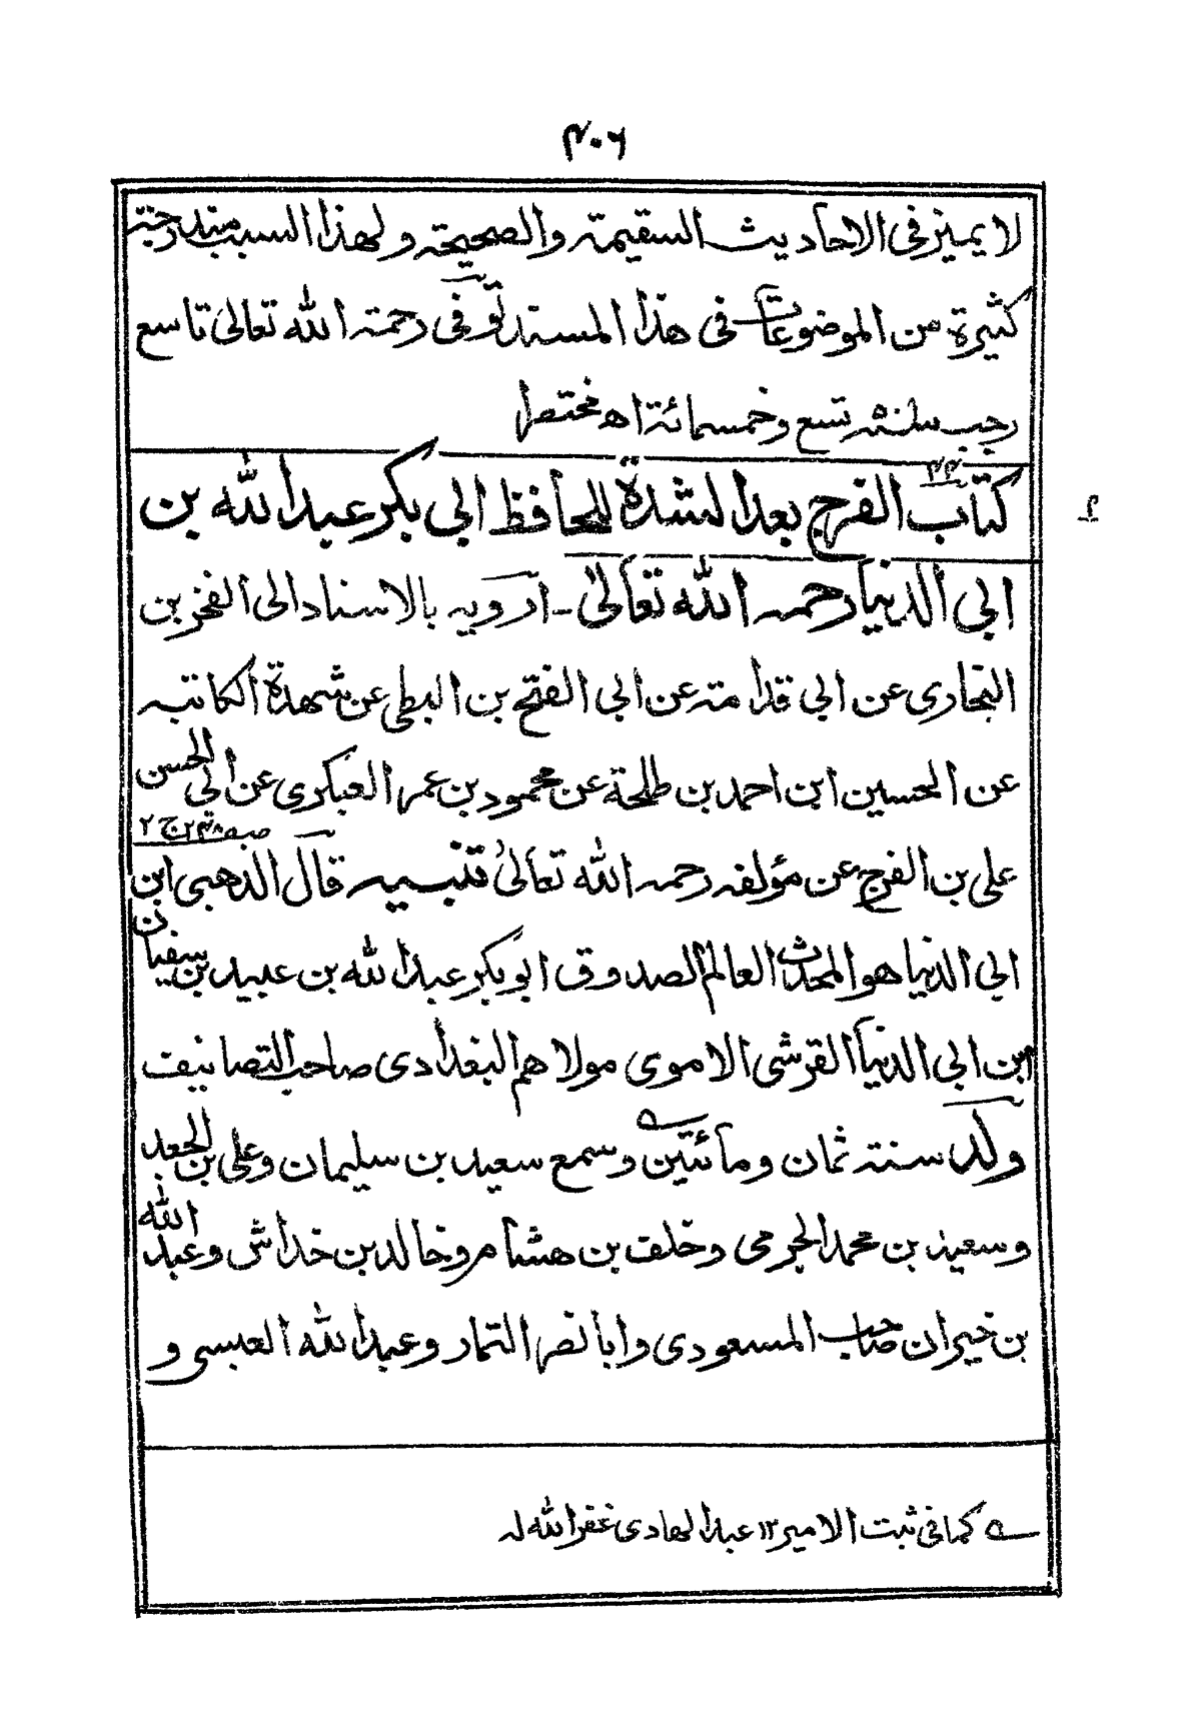 ۴۰۶
لا يميز فى الاحاديث السقيمة والصحيحة ولهذا السبب مندرجة
كثيرة من الموضوعات فى هذا المسند توفى رحمة الله تعالى تاسع
رجب سنة تسع وخمسمائة اھ مختصرا
۴۴
كتاب الفرج بعد الشدة للحافظ ابي بكر عبد الله بن
ابي الدنيا رحمه الله تعالىٰ ـ ارويه بالاسناد الى الفخر بن
البخارى عن ابي قدامة عن ابى الفتح بن البطى عن شهدة الكاتبه
عن الحسين ابن احمد بن طلحة عن محمود بن عمر العكبرى عن ابى الحسن
على بن الفرج عن مؤلفه رحمه الله تعالىٰ تنبيه قال الذهبى ابن
ابي الدنيا هو المحدث العالم الصدوق ابو بكر عبد الله بن عبيد بن سفيان
ابن ابي الدنيا القرشى الاموى مولاهم البغدادى صاحب التصانيف
ولد سنة ثمان ومائتين وسمع سعيد بن سليمان وعلى بن الجعد
وسعيد بن محمد الجرمى وخلف بن هشام وخالد بن خداش وعبد الله
بن خيران صاحب المسعودى وابا نصر التمار وعبد الله العبسى و
كما فى ثبت الامير ۱۲ عبد الهادى غفر الله له